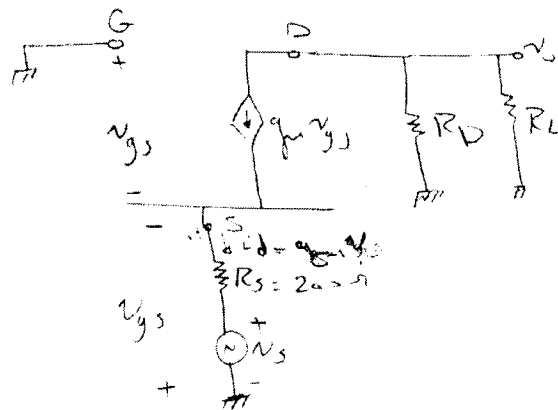 G
+
D
v₀
v_gs
g_m v_gs
R_D
R_L
-
-
S
i_d = g_m v_gs
R_S = 200 Ω
v_gs
+
v_s
+
-